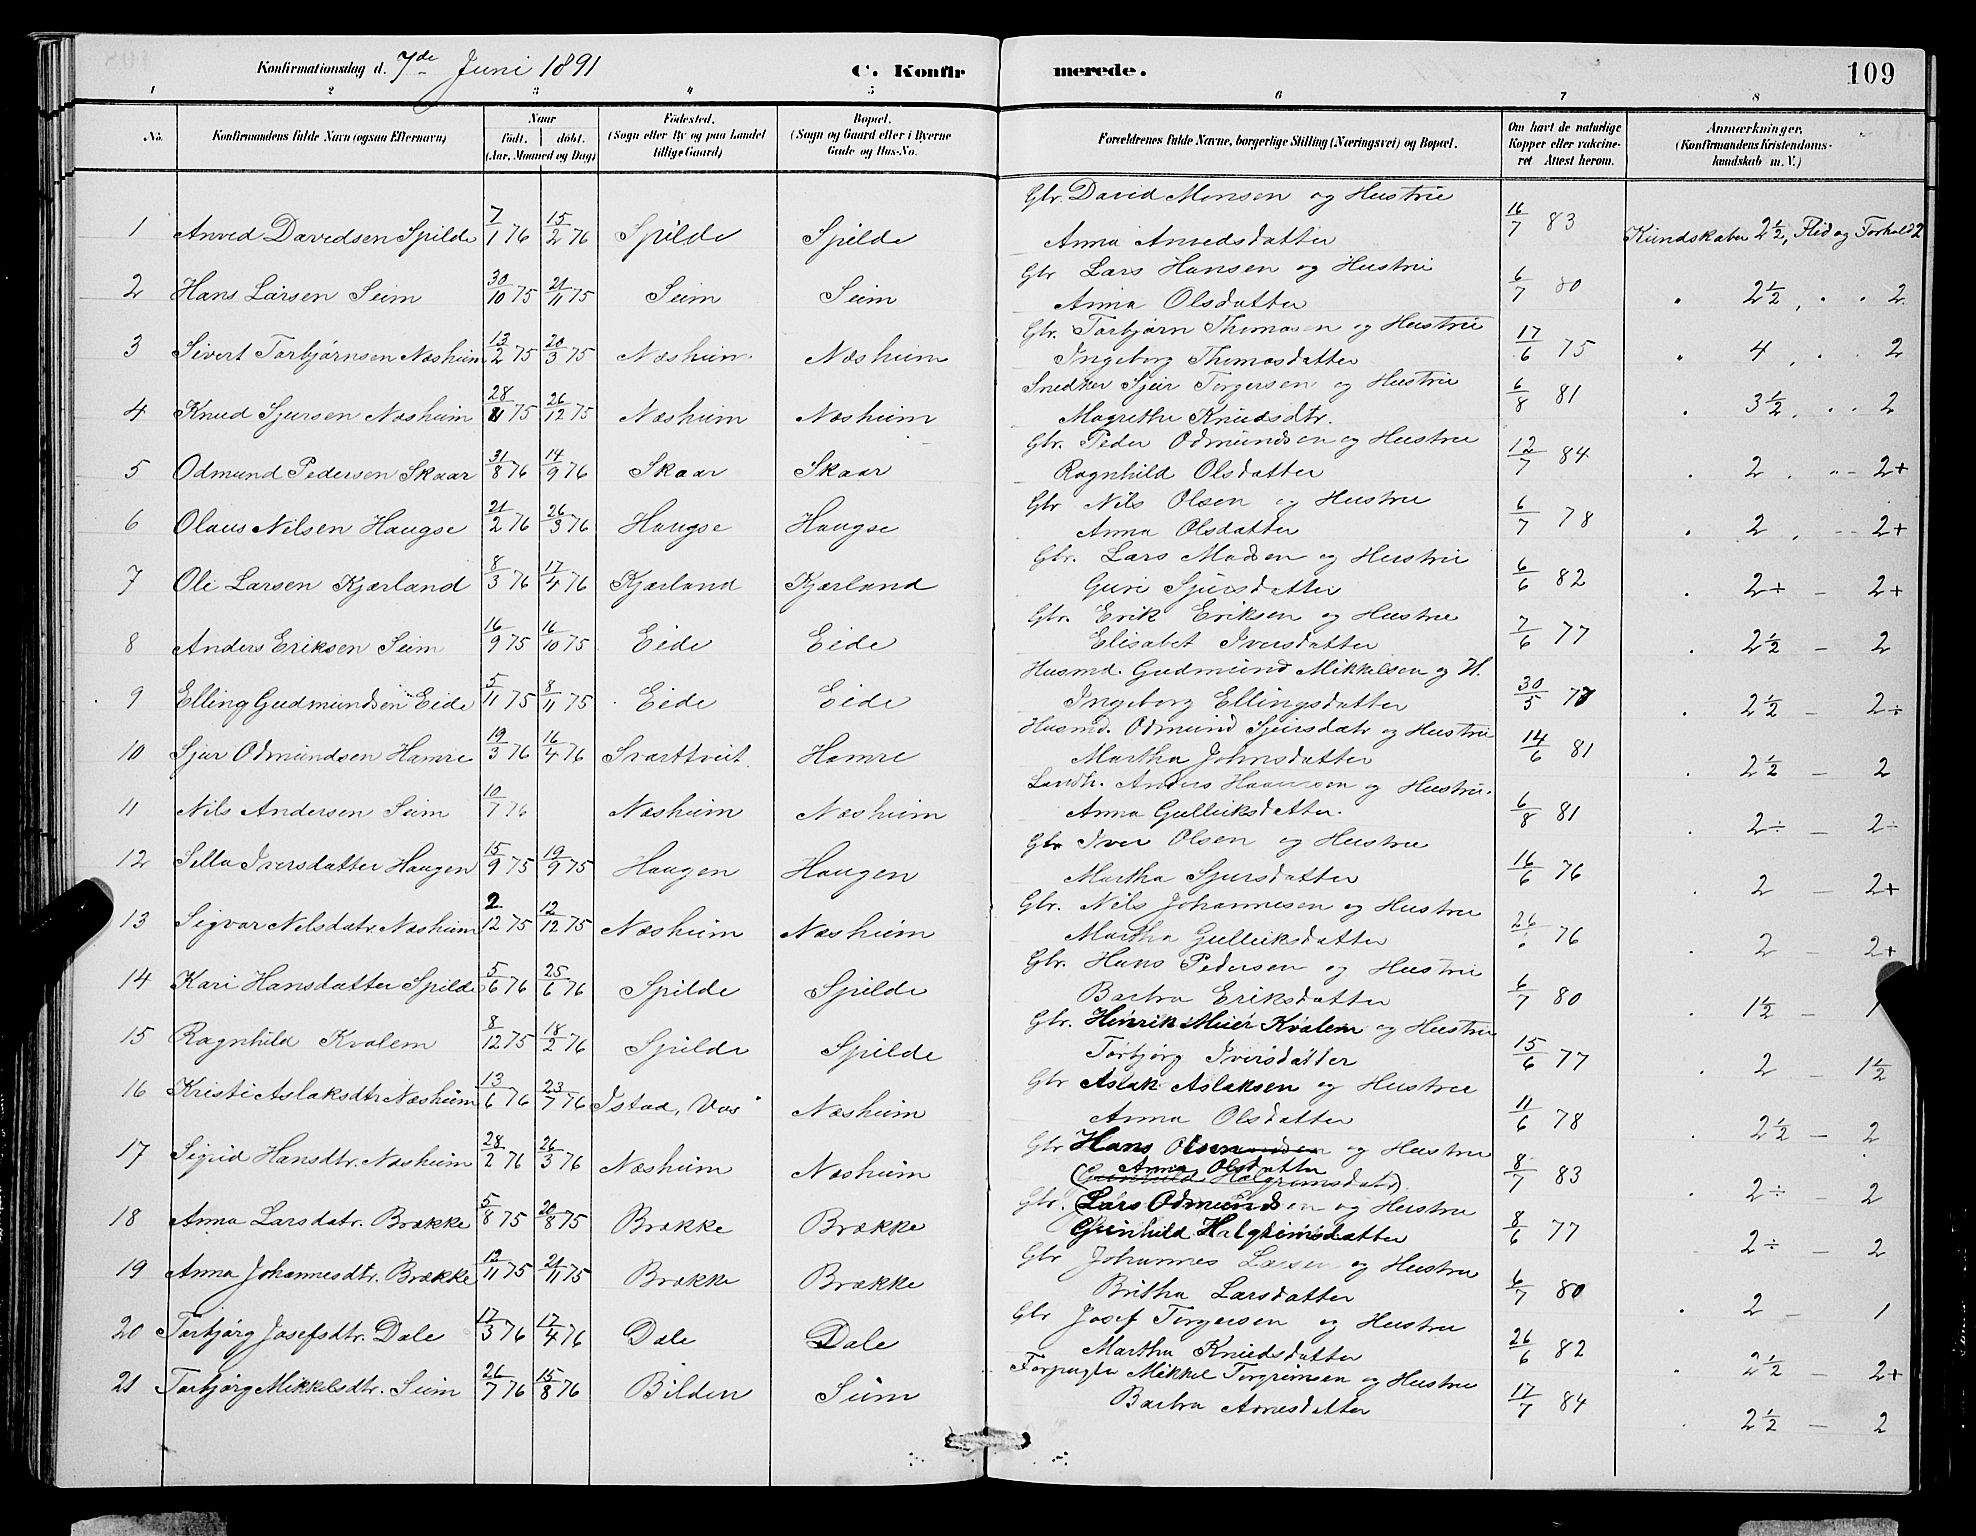 Konfirmationsdag d. 7de Juni 1891 C. Konfirmerede. 109
1 2 3 4 5 6 7 8
No. Konfirmandens fulde Navn (ogsaa Efternavn) Naar født. døbt. (Aar, Maaned og Dag) Fødested. (Sogn eller By og paa Landet tillige Gaard) Bopæl. (Sogn og Gaard eller i Byerne Gade og Hus-No. Forældrenes fulde Navne, borgerlige Stilling (Næringsvei) og Bopæl. Om havt de naturlige Kopper eller vakcineret Attest herom. Anmærkninger, (Konfirmandens Kristendomskundskab m. V.)
Gbr. David Monsen og Hustrue
1 Anved Davidsen Spilde 7/1 76 15/2 76 Spilde Spilde Anna Anvedsdatter 16/7 83 Kundskaber 2½, Flid og Forhold 2
Gbr Lars Hansen og Hustrue
2 Hans Larsen Seim 30/10 75 21/11 75 Seim Seim Anna Olsdatter 6/7 80 " 2½, " " 2
Gbr. Torbjørn Thomasen og Hustrue
3 Sivert Torbjørnsen Næsheim 13/2 75 20/3 75 Næsheim Næsheim Ingeborg Thomasdatter 17/6 75 " 4, " " 2
Snedker Sjur Torgersen og Hustrue
4 Knud Sjursen Næsheim 28/11 75 26/12 75 Næsheim Næsheim Magrethe Knudsdtr. 6/8 81 " 3½, " " 2
Gbr. Peder Odmundsen og Hustrue
5 Odmund Pedersen Skaar 31/8 76 14/9 76 Skaar Skaar Ragnhild Olsdatter 12/7 84 " 2, " - 2+
Gbr Nils Olsen og Hustrue
6 Olaus Nilsen Haugse 21/2 76 26/3 76 Haugse Haugse Anna Olsdatter 6/7 78 " 2, - - 2+
Gbr. Lars Madsen og Hustrue
7 Ole Larsen Kjærland 8/3 76 17/4 76 Kjærland Kjærland Guri Sjursdatter 6/6 82 " 2÷ - 2+
Gbr. Erik Eriksen og Hustrue
8 Anders Eriksen Seim 16/9 75 16/10 75 Eide Eide Elisabet Iversdatter 7/6 77 " 2½ - 2
Husmd. Gudmund Mikkelsen og H.
9 Elling Gudmundsen Eide 5/11 75 8/11 75 Eide Eide Ingeborg Ellingsdatter 30/5 77 " 2½ - 2÷
Husmd. Odmund Sjursdatr og Hustrue
10 Sjur Odmundsen Hamre 19/3 76 16/4 76 Svarttveit Hamre Martha Johnsdatter 14/6 81 " 2½ - 2
Landh. Anders Haansen og Hustrue.
11 Nils Andersen Seim 10/7 76 Næsheim Næsheim Anna Gulleiksdatter. 6/8 81 " 2÷ - 2÷
Gbr Iver Olsen og Hustrue
12 Sella Iversdatter Haugen 15/9 75 19/9 75 Haugen Haugen Martha Sjursdatter 16/6 76 " 2 - 2+
Gbr. Nils Johannesen og Hustrue
13 Sigvor Nilsdatr. Næsheim 2/12 75 12/12 75 Næsheim Næsheim Martha Gulleiksdatter 26/6 76 " 2 - 2+
Gbr. Hans Pedersen og Hustrue
14 Kari Hansdatter Spilde 5/6 76 25/6 76 Spilde Spilde Barbra Eriksdatter 6/7 80 " 1½ - 1
Gbr. Henrik Meier Kvalem og Hustrue
15 Ragnhild Kvalem 8/12 75 18/2 76 Spilde Spilde Torbjørg Iversdatter 15/6 77 " 2 - 1½
Gbr Aslak Aslaksen og Hustrue
16 Kristi Aslaksdtr Næsheim 13/6 76 23/7 76 Istad, Vos" Næsheim Anna Olsdatter 11/6 78 " 2½ - 2
Gbr Hans Olsen og Hustrue
Anna Olsdatter
17 Sigrid Hansdtr. Næsheim 28/2 76 26/3 76 Næsheim Næsheim (Gunhild Halgrimsdatr) 8/7 83 " 2÷ - 2
Gbr. (Lars Odmundsen og Hustrue
18 Anna Larsdatr. Brække 5/8 75 20/8 75 Brække Brække Gunhild Halgrimsdatter 8/6 77 2÷ - 2
Gbr Johannes Larsen og Hustrue
19 Anna Johannesdtr. Brække 12/11 75 21/11 75 Brække Brække Britha Larsdatter 6/7 80 " 2 - 1
Gbr Josef Torgersen og Hustrue
20 Torbjørg Josefsdtr. Dale 17/3 76 17/4 76 Dale Dale Martha Knudsdatter 26/6 82 " 2½ - 2+
Forpagter Mikkel Torgrimsen og Hustrue
21 Torbjørg Mikkelsdtr. Seim 26/7 76 15/8 76 Bilden Seim Barbra Arnesdatter 17/7 84 " 2½ - 2